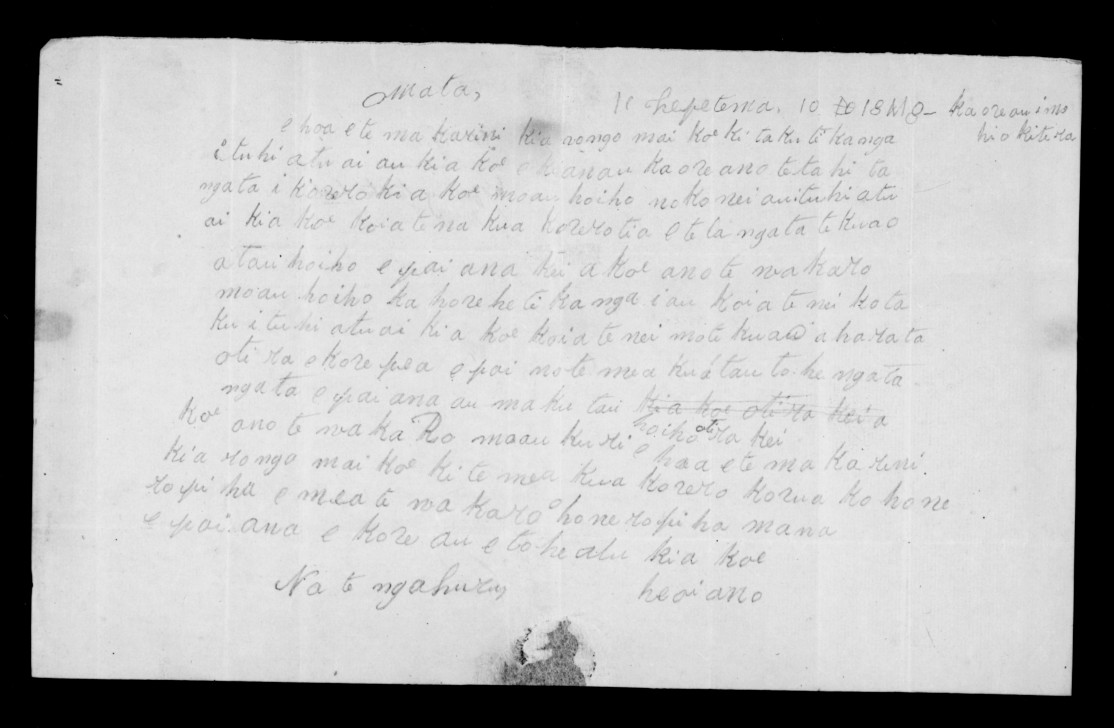 Mata,
Hepetema. 10 18 kaore au i mo
hio ki te ra
e hoa e te ma karini kia rongo mai koe ki taku tekanga
i tuhi atu ai au kia koe e kianau kaore ano te tahi ta
ngata i korero kia koe moau hoiho no konei au i tuhi atu
ai kia koe koia te na kua korerotia e te la ngata te kuao
atau hoiho e pai ana kei a koe ano te wakaro
moau hoiho ka hore he tikanga i au koia te nei ko ta
ku i tuhi atu ai kia koe koia te nei mo te kuao aharata
oti ra e kore pea e pai no te mea ku a tau to he ngata
ngata e pai ana au maku tau kia koe oti ra kei a
koe ano te wakaRo moau kuri hoiho oti ra kei
e hoa e te ma karini.
kia rongo mai koe ki te mea kua korero korua ko hone
ropiha e mea te wakaro hone ropiha mana
e pai ana e kore au e tohe atu kia koe
Na te ngahuru heoi ano